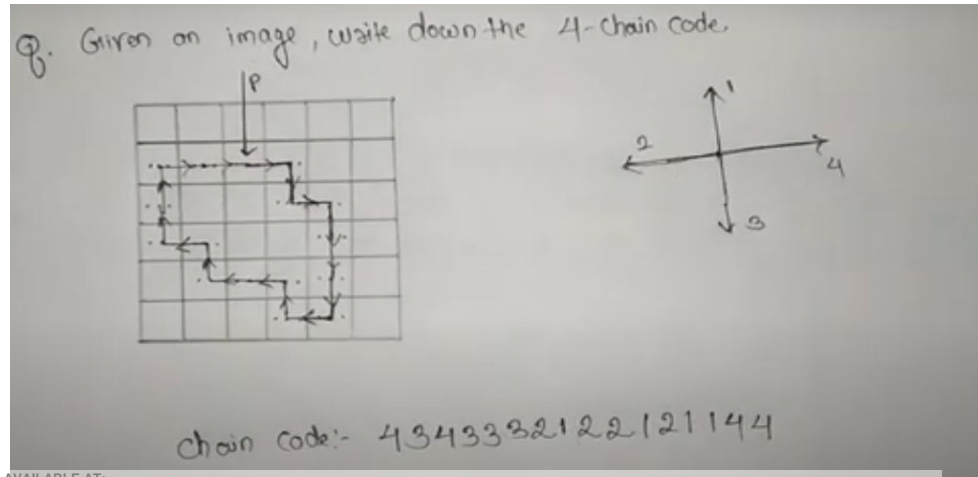 Q. Given an image, write down the 4-chain code.
P
1
2
4
3
chain code:- 4343332122121144